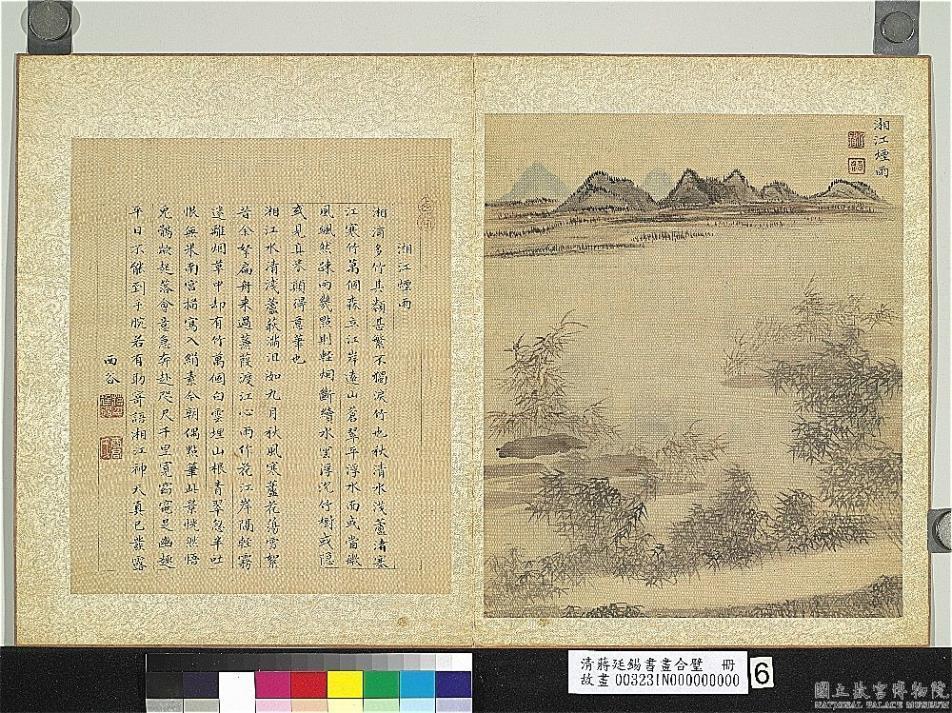 湘江煙雨
湘江煙雨
湘浦多竹其類甚繁不獨淚竹也秋清水淺蘆清塞
江寒竹萬個森立江岸遠山蒼翠平浮水面或當微
風颯然疎雨幾點則輕烟斷續水雲浮沉竹樹或隱
或見真米顛得意筆也
湘江水清淺蘆荻滿沮如九月秋風寒蘆花蕩雪絮
昔余拏扁舟來過蒹葭渡江心雨作花江岸隔輕霧
迷離烟草中却有竹萬個白雲埋山根青翠忽半吐
恨無米南宮描寫入絹素今朝偶點筆此景恍然悟
兔鶻欻起落會意急奔赴咫尺千里寬窈窕是幽趣
平日不能到手腕若有助寄語湘江神天真已紫露
西谷
清蔣廷錫書畫合璧　冊
故畫003231N000000000
6
國立故宮博物院
NATIONAL PALACE MUSEUM